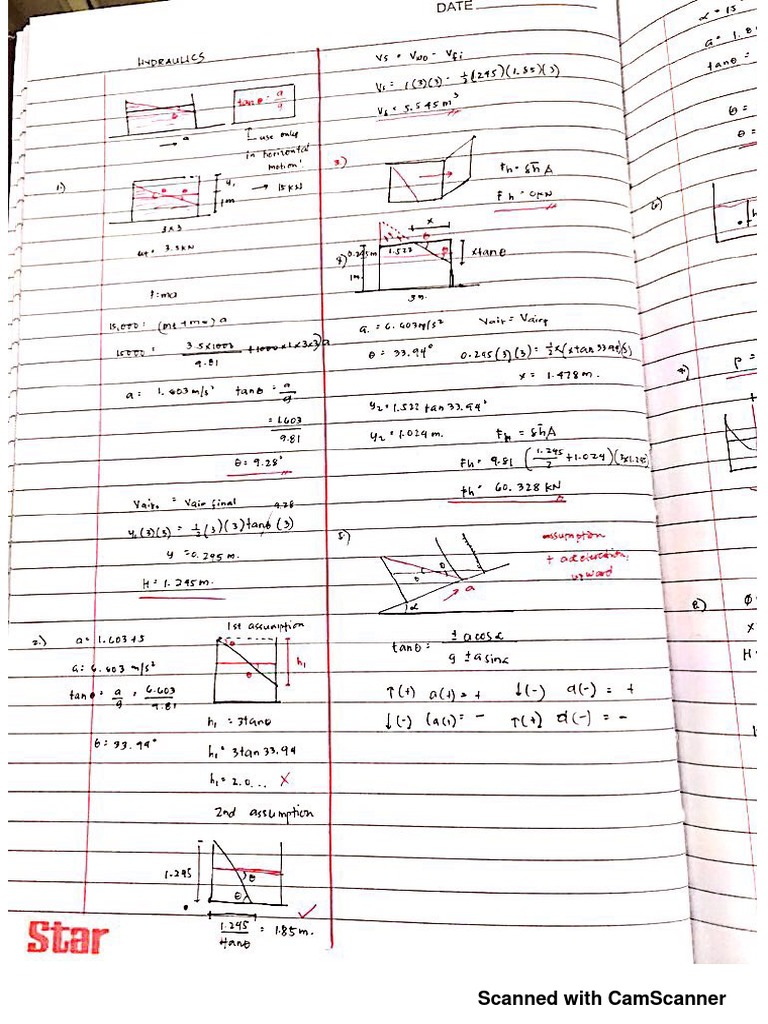 DATE
HYDRAULICS
tanθ = a/g
θ
→ a
use only
in horizontal
motion!
1)
y,
1m
→ 15 KN
3 x 3
wt = 3.5KN
F=ma
15,000 = (mt + mw) a
15000 = 3.5x1000/9.81 + 1000x1x3x3) a
a = 1.603 m/s² tanθ = a/g
= 1.603/9.81
θ = 9.28°
Vairo = Vair final
9.28
y,(3)(3) = ½(3)(3)tanθ (3)
y = 0.245 m.
H = 1.245 m.
2.) a = 1.603+5
a = 6.603 m/s²
tanθ = a/g = 6.603/9.81
θ = 33.94°
1st assumption
θ
θ
h₁
h₁ = 3tanθ
h₁ = 3tan 33.94
h₁ = 2.0... X
2nd assumption
1.245
θ
θ
1.245/tanθ = 1.85 m.
✓
Star
Vs = Vwo - Vfi
Vs = 1(3)(3) - ½(1.245)(1.85)(3)
Vs = 5.545 m³
3)
Fh = γh̄A
Fh = 0KN
4)
x
0.245m
1.522
1m
θ
θ
xtanθ
3m.
a = 6.603m/s² Vair = Vair
θ = 33.94° 0.245(3)(3) = ½x(xtan 33.94)(3)
x = 1.478 m.
y₂ = 1.522 tan 33.94°
y₂ = 1.024 m. Fh = γh̄A
Fh = 9.81 (1.245/2 + 1.024)(3x1.245)
Fh = 60.328 KN
5)
θ
θ
α
a
assumption
+ acceleration,
upward
tanθ = ± a cos α / g ± a sin α
↑(+) a(+) = + ↓(-) a(-) = +
↓(-) (a(+) = - ↑(+) a(-) = -
α = 15
a = 1.8
tanθ =
θ =
θ =
6)
h
7)
P =
8)
Ø
x
H =
Scanned with CamScanner